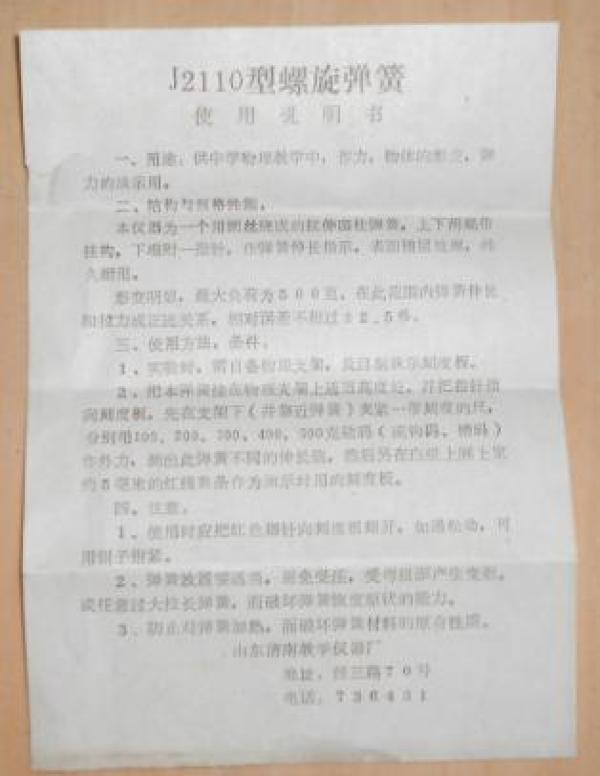 J2110型螺旋弹簧
使用说明书
一、用途：供中学物理教学中，作力，物体的形变，弹
力的演示用。
二、结构与规格性能。
本仪器为一个用钢丝绕成的拉伸圆柱弹簧，上下两端带
挂钩，下端附一指针，作弹簧伸长指示，表面镀层处理，耐
久耐用。
形变明显，最大负荷为500克，在此范围内弹簧伸长
和拉力成正比关系，相对误差不超过±2.5%。
三、使用方法，条件。
1、实验时，需自备物理支架，及自制演示刻度板。
2、把本弹簧挂在物理支架上适当高度处，并把指针指
向刻度板，先在支架下（并靠近弹簧）夹紧一带刻度的尺，
分别用100、200、300、400、500克砝码（或钩码、槽码）
作外力，测出此弹簧不同的伸长值，然后另在白纸上画上宽
约5毫米的红线两条作为演示时用的刻度板。
四、注意。
1、使用时应把红色指针向刻度板翻开，如遇松动，可
用钳子钳紧。
2、弹簧放置要适当，避免受压，受得扭部产生变形，
或任意过大拉长弹簧，而破坏弹簧恢复原状的能力。
3、防止对弹簧加热，而破坏弹簧材料的原有性质。
山东济南教学仪器厂
地址：经三路70号
电话：736431